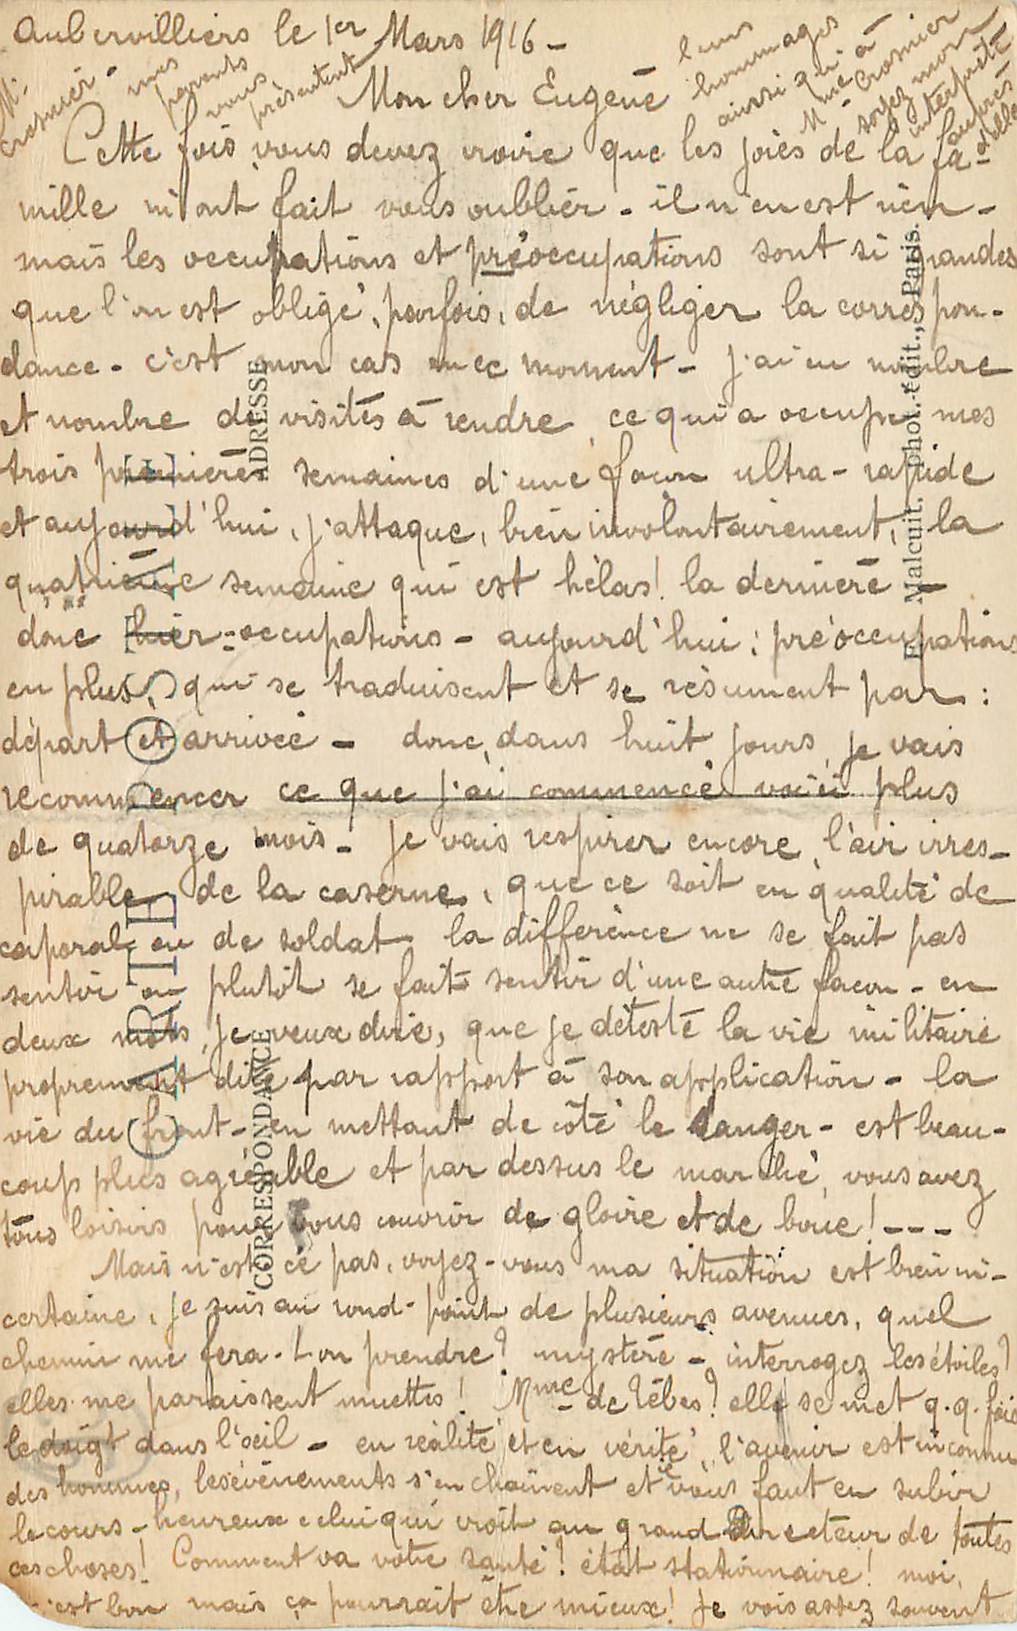 Aubervilliers le 1er Mars 1916 -
Mon cher Eugène
Cette fois vous devez croire que les joies de la fa-
mille m'ont fait vous oublier - il n'en est rien -
mais les occupations et préoccupations sont si grandes
que l'on est obligé, parfois, de négliger la correspon-
dance - c'est mon cas en ce moment - j'ai eu nombre
et nombre de visites à rendre, ce qui a occupé mes
trois premières semaines d'une façon ultra-rapide
et aujourd'hui, j'attaque, bien involontairement, la
quatrième semaine qui est hélas! la dernière -
donc hier = occupations - aujourd'hui : préoccupations
en plus, qui se traduisent et se résument par :
départ et arrivée - donc, dans huit jours je vais
recommencer ce que j'ai commencé voici plus
de quatorze mois - je vais respirer encore l'air irres-
pirable de la caserne, que ce soit en qualité de
caporal ou de soldat la différence ne se fait pas
sentir ou plutôt se fait sentir d'une autre façon - en
deux mots, je veux dire, que je déteste la vie militaire
proprement dite par rapport à son application - la
vie du front - en mettant de côté le danger - est beau-
coup plus agréable et par dessus le marché, vous avez
tous loisirs pour vous couvrir de gloire et de boue! ---
Mais n'est-ce pas, voyez-vous ma situation est bien in-
certaine, je suis au rond-point de plusieurs avenues, quel
chemin me fera-t-on prendre? mystère - interrogez les étoiles?
elles me paraissent muettes! Mme de Tèbes? elle se met q.q. fois
le doigt dans l'oeil - en réalité et en vérité, l'avenir est inconnu
des hommes, les évènements s'enchaînent et il vous faut en subir
le cours - heureux celui qui croit au grand Directeur de toutes
ces choses! Comment va votre santé? état stationnaire! moi,
c'est bon mais ça pourrait être mieux! Je vois assez souvent
M. Crosnier - mes
parents
vous
présentent
leurs
hommages
ainsi qu'à
Mme Crosnier
soyez mon
interprète
auprès
d'elle
CARTE POSTALE
CORRESPONDANCE
ADRESSE
E. Malcuit. phot.-édit., Paris.